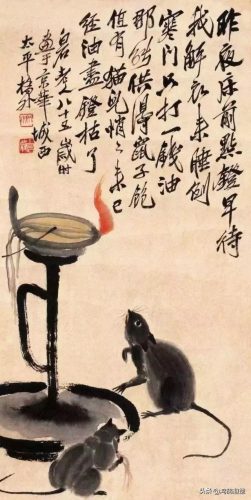 昨夜床前點鐙早待
我解衣來睡倒
寒門只打一錢油
那能供得鼠子飽
值有貓兒悄〻來已
經油盡鐙枯了
白石老人八十五歲時
畫于京華城西
太平橋外
头条